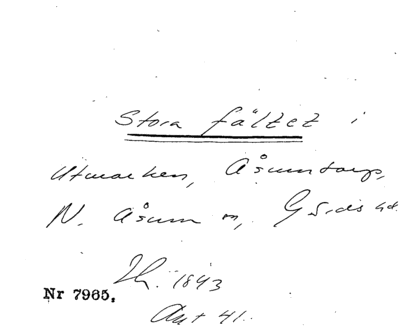 Stora fältet i
Utmarken, Åsumtorp,
N. Åsum sn, Gärds hd.
1843
Nr 7965.
Akt 41.